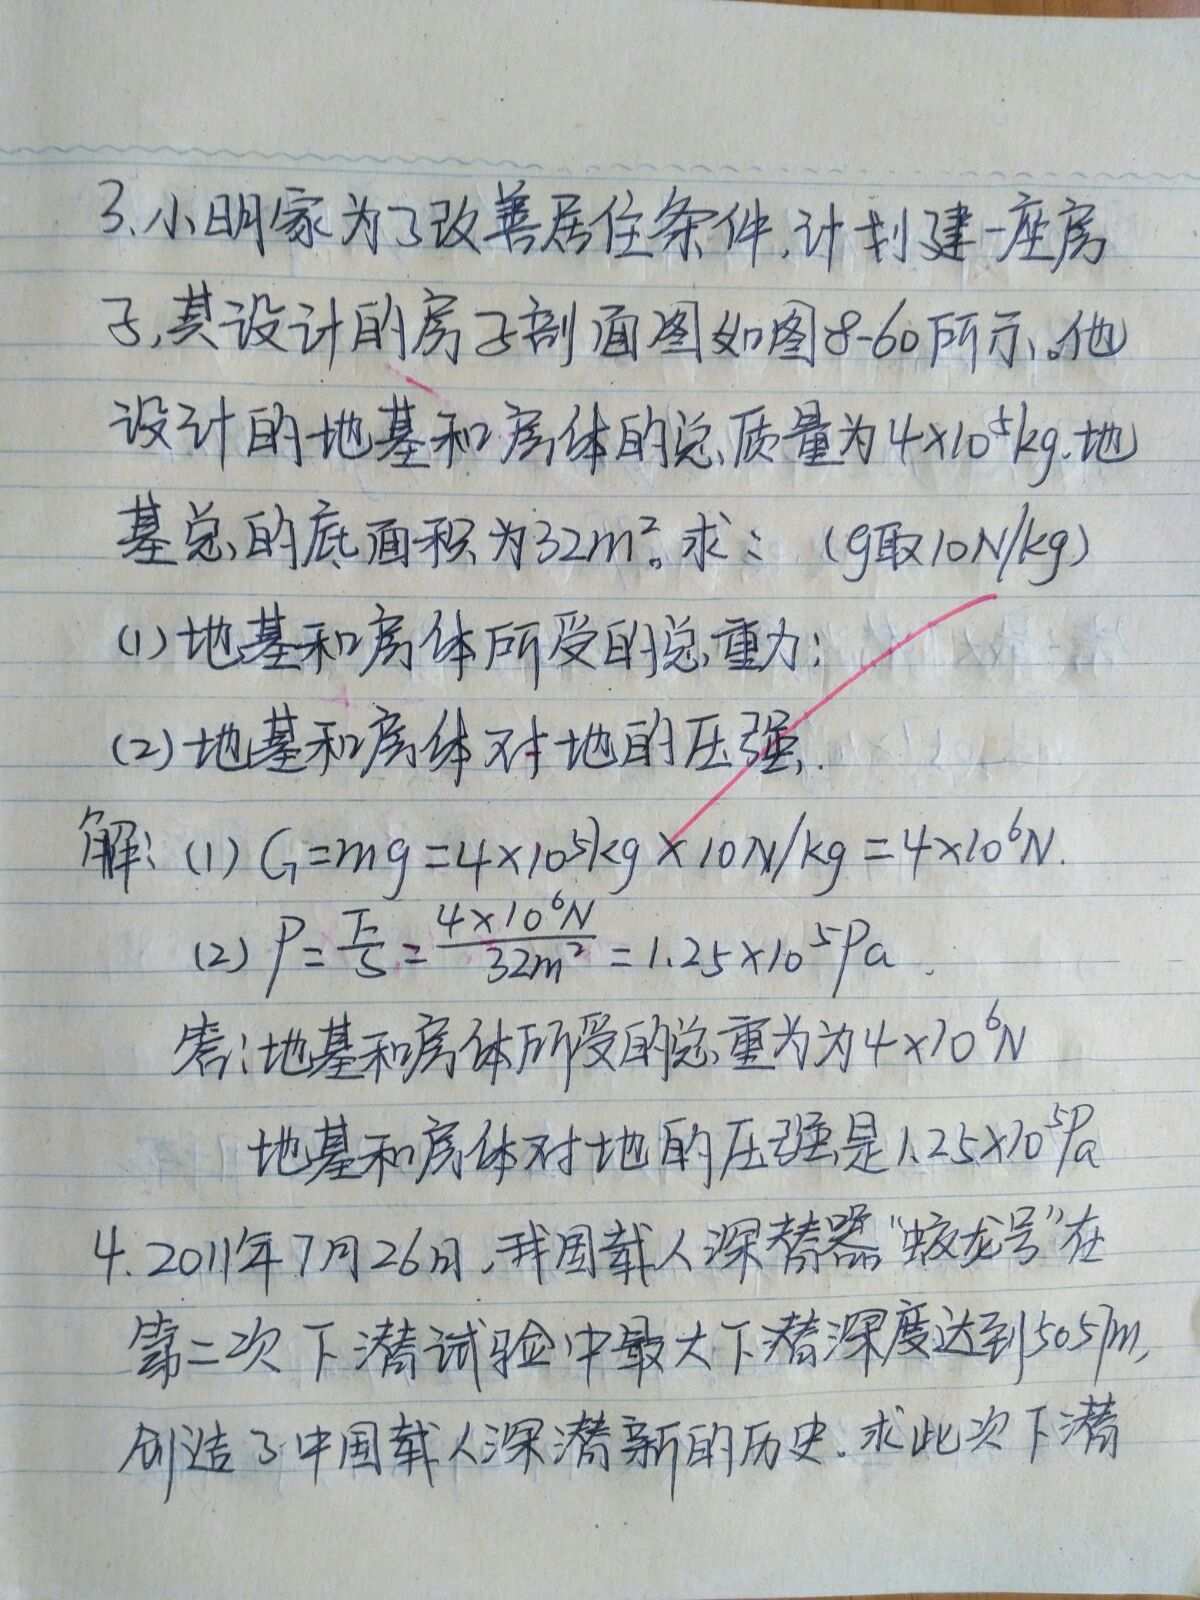 3.小明家为了改善居住条件,计划建一座房
子,其设计的房子剖面图如图8-60所示。他
设计的地基和房体的总质量为4×10⁵kg.地
基总的底面积为32m²。求: (g取10N/kg)
(1)地基和房体所受的总重力;
(2)地基和房体对地的压强.
解:(1) G=mg=4×10⁵kg×10N/kg=4×10⁶N.
(2) P=F/S=4×10⁶N/32m²=1.25×10⁵Pa.
答:地基和房体所受的总重为为4×10⁶N
地基和房体对地的压强是1.25×10⁵Pa
4.2011年7月26日,我国载人深潜器“蛟龙号”在
第二次下潜试验中最大下潜深度达到5057m,
创造了中国载人深潜新的历史.求此次下潜